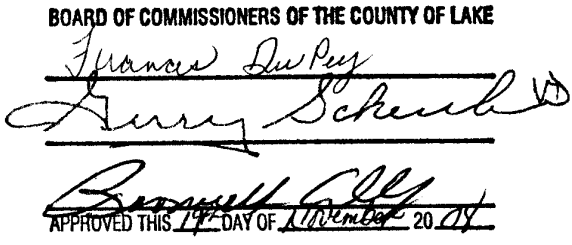 BOARD OF COMMISSIONERS OF THE COUNTY OF LAKE
Frances DuPey
Gerry Scheub
APPROVED THIS 19th DAY OF November 20 04